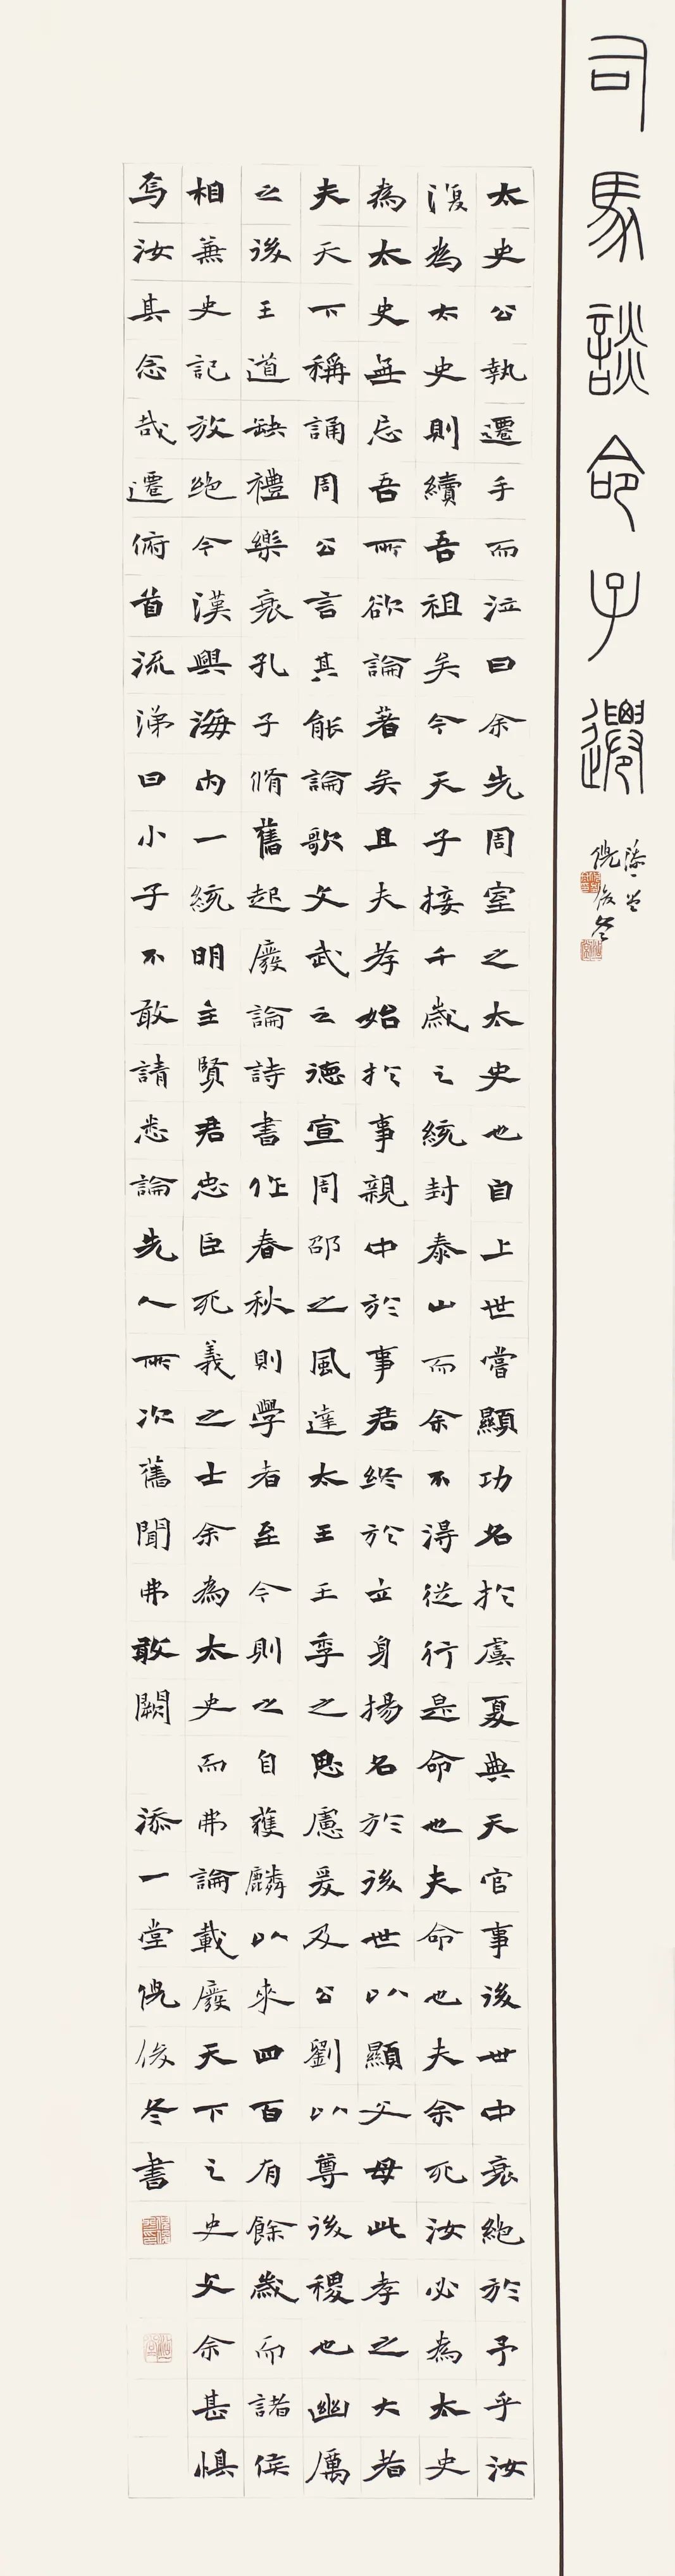 司馬談命子遷
添一堂
倪俊冬
太史公執遷手而泣曰余先周室之太史也自上世嘗顯功名於虞夏典天官事後世中衰絕於予乎汝
復為太史則續吾祖矣今天子接千歲之統封泰山而余不得從行是命也夫命也夫余死汝必為太史
為太史無忘吾所欲論著矣且夫孝始於事親中於事君終於立身揚名於後世以顯父母此孝之大者
夫天下稱誦周公言其能論歌文武之德宣周邵之風達太王王季之思慮爰及公劉以尊後稷也幽厲
之後王道缺禮樂衰孔子脩舊起廢論詩書作春秋則學者至今則之自獲麟以來四百有餘歲而諸侯
相兼史記放絕今漢興海內一統明主賢君忠臣死義之士余為太史而弗論載廢天下之史文余甚懼
焉汝其念哉遷俯首流涕曰小子不敢請悉論先人所次舊聞弗敢闕 添一堂倪俊冬書